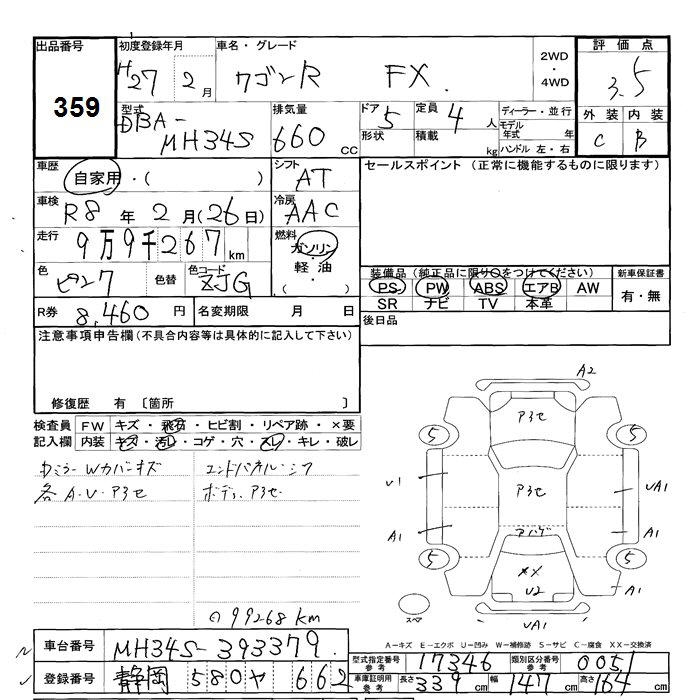 出品番号 359
初度登録年月 H27年 2月
車名・グレード ワゴンR FX
2WD・4WD
評価点 3.5
外装 C 内装 B
型式 DBA-MH34S
排気量 660 cc
ドア 5 形状
定員 4 人 積載 kg
ディーラー・並行
モデル年式 年
ハンドル 左・右
車歴 自家用・( )
シフト AT
セールスポイント (正常に機能するものに限ります)
車検 R8 年 2 月 (26日)
冷房 AAC
走行 9万9千267 km
燃料 ガソリン・軽油・( )
色 ピンク 色替 色コード ZJG
装備品 (純正品に限り○をつけてください) 新車保証書
PS PW ABS エアB AW 有・無
SR ナビ TV 本革
R券 8,460 円 名変期限 月 日
後日品
注意事項申告欄 (不具合内容等は具体的に記入して下さい)
修復歴 有 〔箇所 〕
検査員 FW キズ・飛石・ヒビ割・リペア跡・×要
記入欄 内装 キズ・汚レ・コゲ・穴・スレ・キレ・破レ
各A・U・アセ
エンドパネル・シフ
ボディ アセ
㋱99268km
A2
アセ
5 5
U1 アセ UA1
A1 アハゲ A1
5 5
XX A1
U2
スペア UA1
A-キズ E-エクボ U-凹み W-補修跡 S-サビ C-腐食 XX-交換済
車台番号 MH34S-393379
型式指定番号 参考 17346 類別区分番号 参考 0051
登録番号 静岡 580 ヤ 662
車庫証明用 参考 長さ 339 cm 幅 147 cm 高さ 164 cm